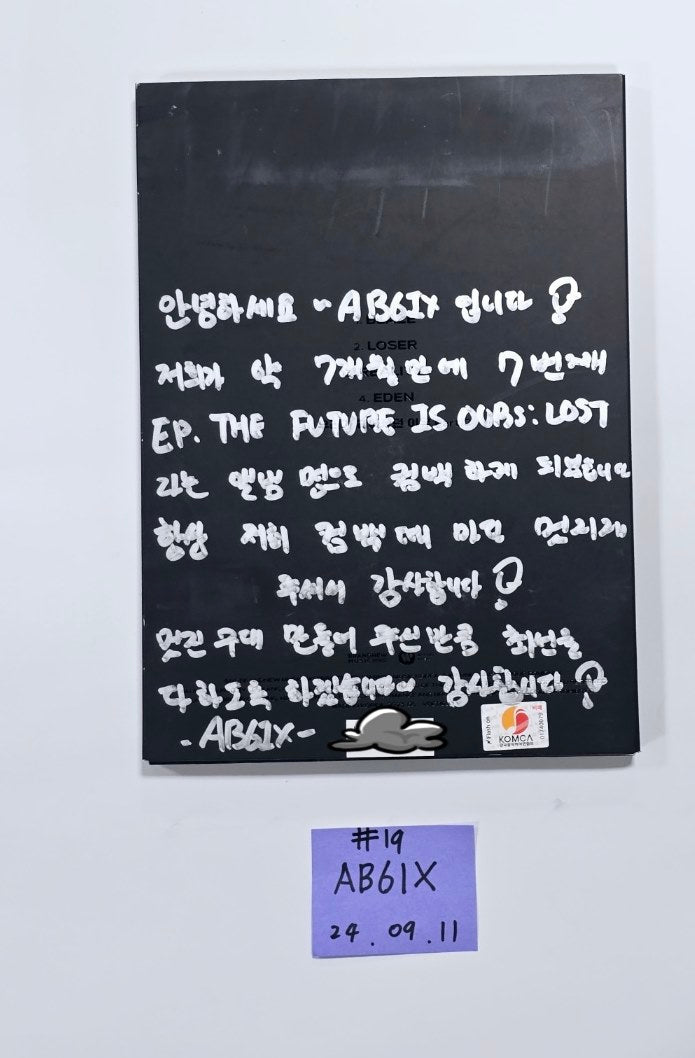 안녕하세요~ AB6IX 입니다!
2. LOSER
저희가 약 7개월만에 7번째
4. EDEN
EP. THE FUTURE IS OURS: LOST
라는 앨범 명으로 컴백 하게 되었습니다
항상 저희 컴백 때 마다
주셔서 감사합니다!
멋진 무대 만들어 주신만큼 최선을
다하도록 하겠습니다 감사합니다!
-AB6IX-
KOMCA
#19
AB6IX
24.09.11